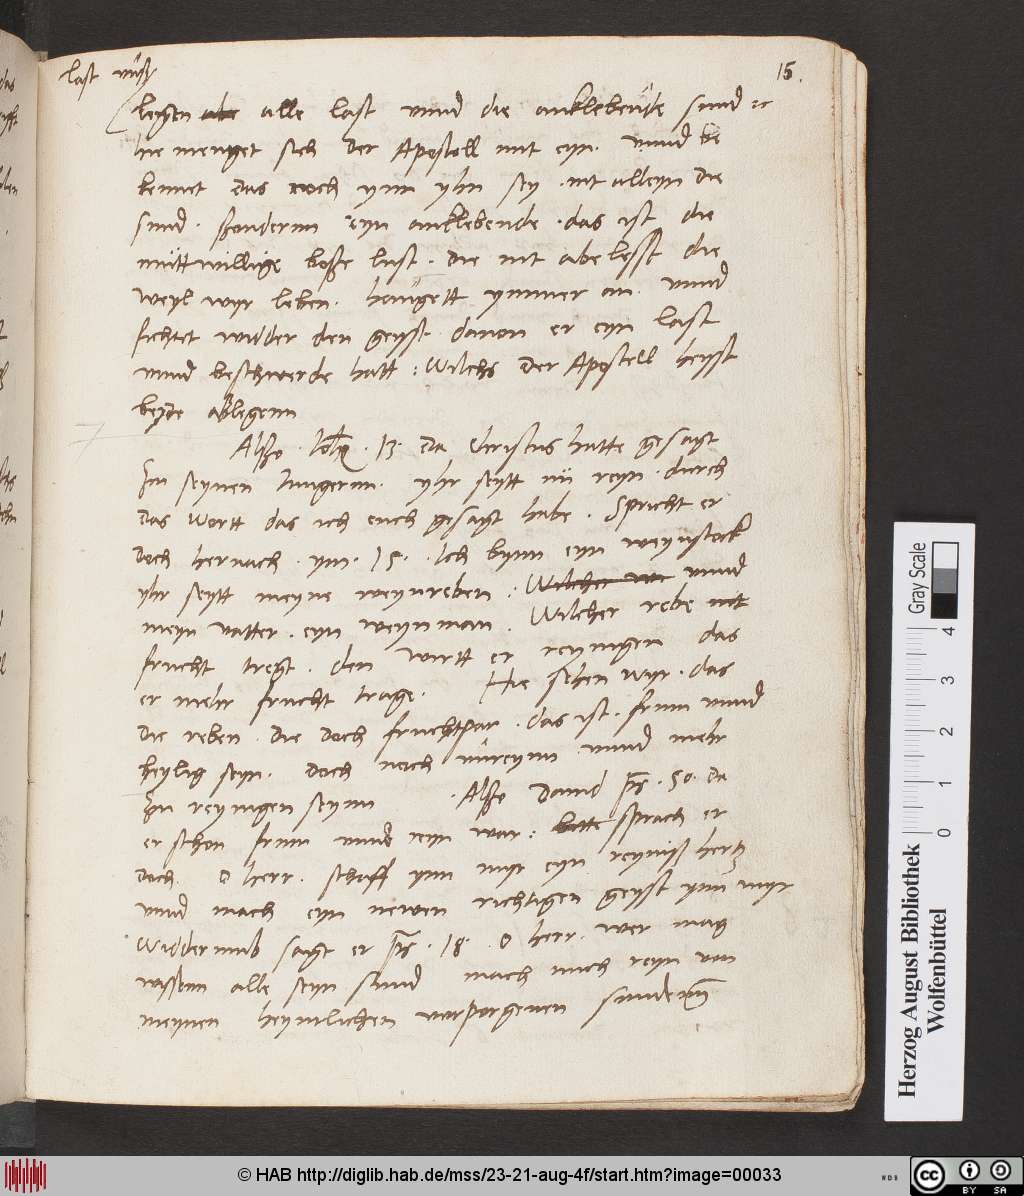 last uns 15.
legen abe alle last vnnd die anklebende sund ꝛc
hie menget sich der Apostoll mit eyn. vnnd be
kennet das noch ynn yhn sey nit alleyn die
sund. ßondernn eyn anklebende. das ist die
muttwillige boße lust. die nit abelesst die
weyl wyr leben. hanngett ymmer an vnnd
fichtet widder den geyst. dauon er eyn last
vnnd beschwerde hatt: Wilchs der Apostell heyst
beyde ablegenn
Alßo. Joh. 13. da Christus hatte gesagt
zu seynen Jungernn. yhr seytt nu reyn. durch
das wortt das ich euch gesagt habe. Spricht er
doch hernach. ym. 15. Ich bynn eyn weynstock
yhr seytt meyne weynreben. Wilcher vnnd
meyn vatter. eyn weynman. Wilcher rebe nit
frucht tregt. den wirtt er reynigen das
er mehr frucht trage. Hie sehen wyr. das
die reben. die doch fruchtpar. das ist. frum vnnd
heylig seyn. doch noch vnreynn vnnd mehr
zu reynigen seynn. Alßo Dauid ps. 50. da
er schon frum vnnd reyn war: bitte sprach er
doch. O herr. schaff ynn myr eyn reyniß hertz
vnnd mach eyn newen richtigen geyst ynn myr
Widderumb sagt er ps. 18. O herr. wer mag
wissenn alle seyn sund mach mich reyn von
meynen heymlichen vorporgenen sundenn
Gray Scale
0 1 2 3 4
Herzog August Bibliothek
Wolfenbüttel
© HAB http://diglib.hab.de/mss/23-21-aug-4f/start.htm?image=00033
WDB
cc BY SA